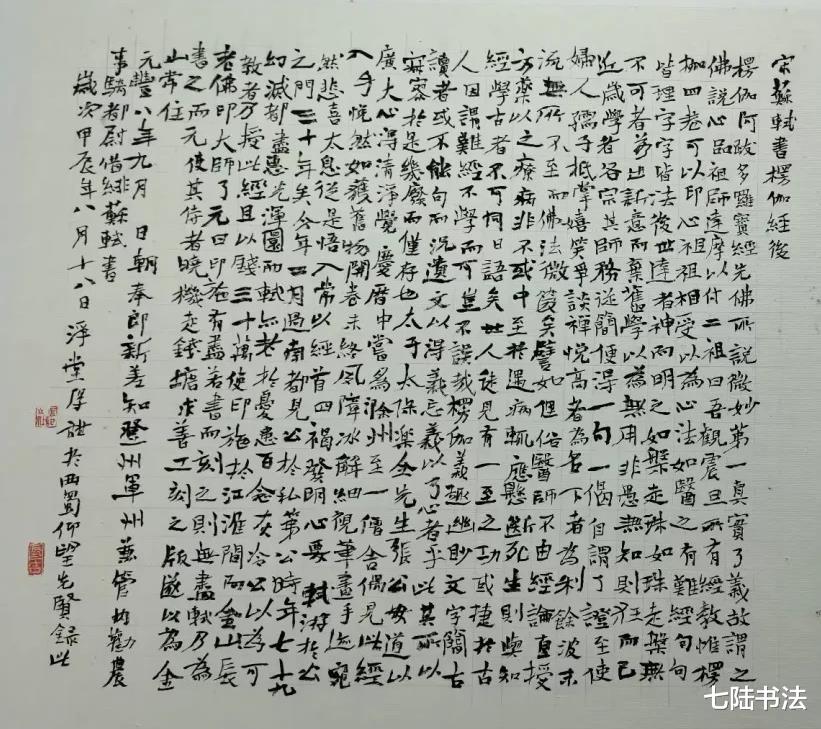 宋蘇軾書楞伽經後
楞伽阿跋多羅寶經先佛所說微妙第一真實了義故謂之
佛說心品祖師達摩以付二祖曰吾觀震旦所有經教惟楞
枷四卷可以印心祖祖相受以為心法如醫之有難經句句
皆理字字皆法後世達者神而明之如槃走珠如珠走槃無
不可者若出新意而棄舊學以為無用非愚無知則狂而已
近歲學者各宗其師務從簡便得一句一偈自謂了證至使
婦人孺子抵掌嬉笑爭談禪悅高者為名下者為利餘波末
流無所不至而佛法微矣譬如俚俗醫師不由經論直授
方藥以之療病非不或中至於遇病輒應懸斷死生則與知
經學古者不可同日語矣世人徒見有一至之功或捷於古
人因謂難經不學而可豈不誤哉楞伽義趣幽眇文字簡古
讀者或不能句而況遺文以得義忘義以了心者乎此其所以
寂寥於是幾廢而僅存也太子太保樂全先生張公安道以
廣大心得清淨覺慶曆中嘗為滁州至一僧舍偶見此經
入手恍然如獲舊物開卷未終夙障冰解細視筆畫手迹宛
然悲喜太息從是悟入常以經首四褐發明心要軾游於公
之門三十年矣今年二月過南都見公於私第公時年七十九
幻滅都盡惠光渾圜而軾亦老於憂患百念灰冷公以為可
教者乃授此經且以錢三十萬使印施於江淮間而金山長
老佛印大師了元曰印施有盡若書而刻之則無盡軾乃為
書之而元使其侍者曉機走錢塘求善工刻之版遂以為金
山常住
元豐八年九月 日朝奉郎新差知登州軍州兼管內勸農
事騎都尉借緋蘇軾書
歲次甲辰年八月十八日淨堂於西蜀仰望先賢錄此
七陆书法